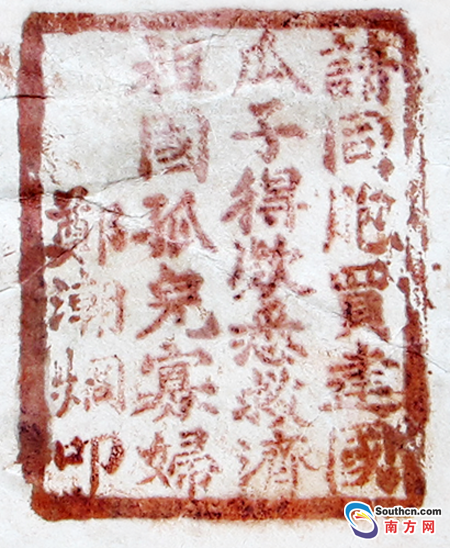 請同胞買建國
瓜子得款悉救濟
祖國孤兒寡婦
鄭潮烱印
Southcn.com
南方网